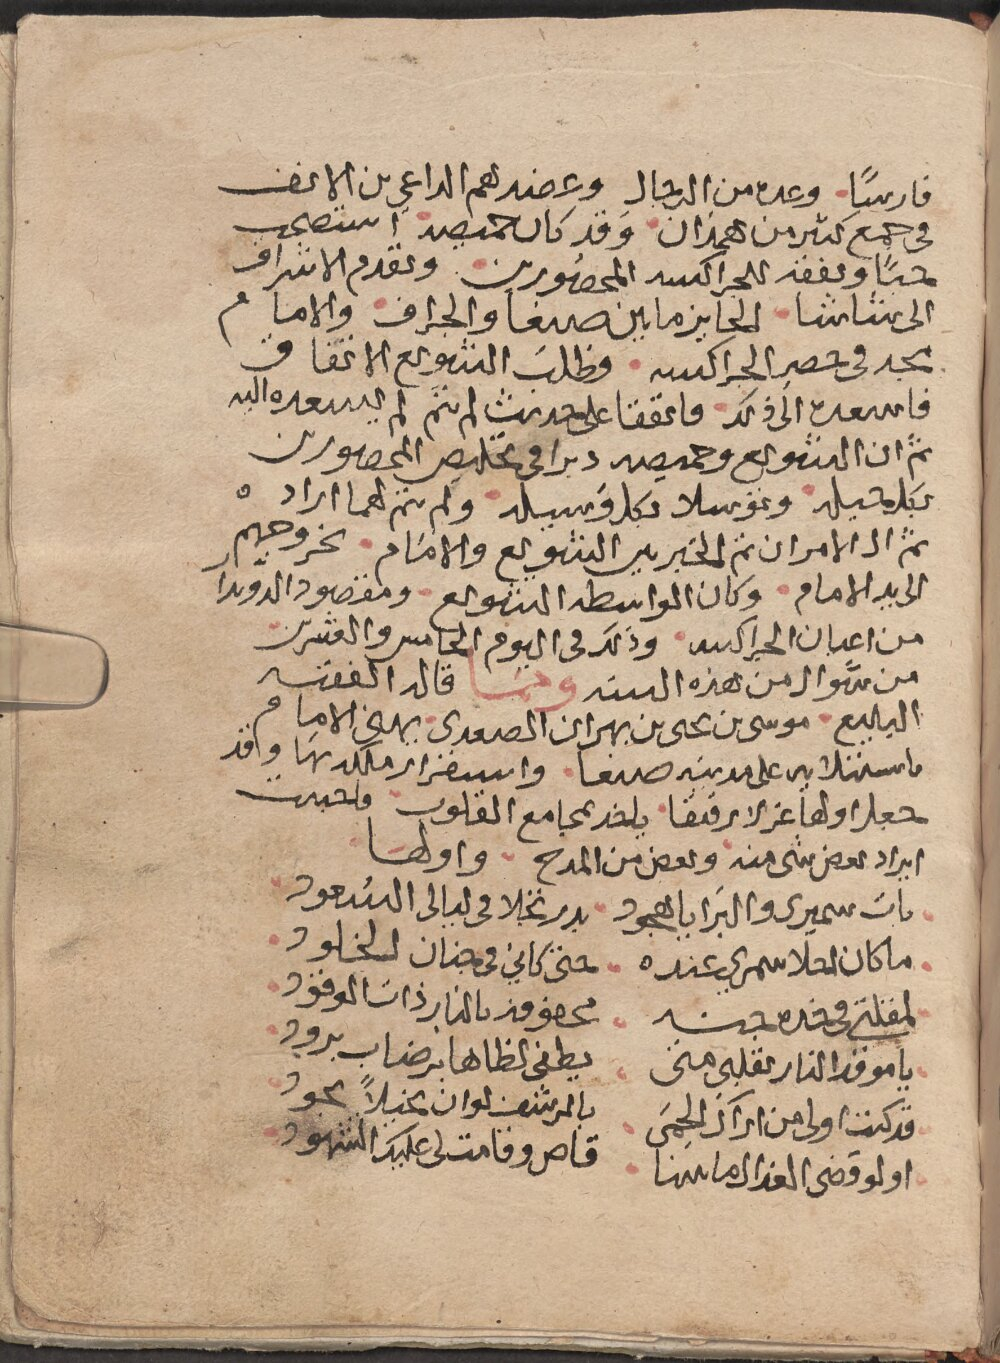 فارسًا وعده من الرجال وعضدهم الداعي بن الانف
في جمع كثير من همدان وقد كان حميصه استصحب
حبًا ونفقه للجراكسه المحصورين وتقدم الاشراف
الى شاشا الحايز ما بين صنعا والجراف والامام
مجد في حصر الجراكسه وطلب الشويع الاتفاق
فاسعده الى ذلك فاتفقا على حديث لم يتم لم يسعده اليه
ثم ان الشويع وحميصه دبرا في تخليص المحصورين
بكل حيله وتوسلا بكل وسيله ولم يتم لهما اراده
ثم ال الامر ان تم الخبر بين الشويع والامام بخروجهم
الى يد الامام وكان الواسطه الشويع ومقصود الدويدار
من اعيان الجراكسه وذلك في اليوم الخامس والعشرين
من شوال من هذه السنه وفيها قال الفقيه
البليغ موسى بن يحيى بن بهران الصعدي يهني الامام
باستيلايه على مدينه صنعا واستقرار ملكه بها وقد
جعل اولها غزلا رقيقا ياخذ بمجامع القلوب واحببت
ايراد بعض شي منه وبعض من المدح واولها
بات سميري والبرايا هجود بدر تجلا في ليالي السعود
ما كان احلا سمري عنده حتى كاني في جنان الخلود
لمقلتي في خده جنه محفوفه بالنار ذات الوقود
يا موقد النار بقلبي متى يطفى لظاها برضاب برود
قد كنت اولى من اراك الحمى بالرشف لو ان بخيلاً يجود
او لو قضى العدال ما بيننا قاض وقامت لي عليك الشهود